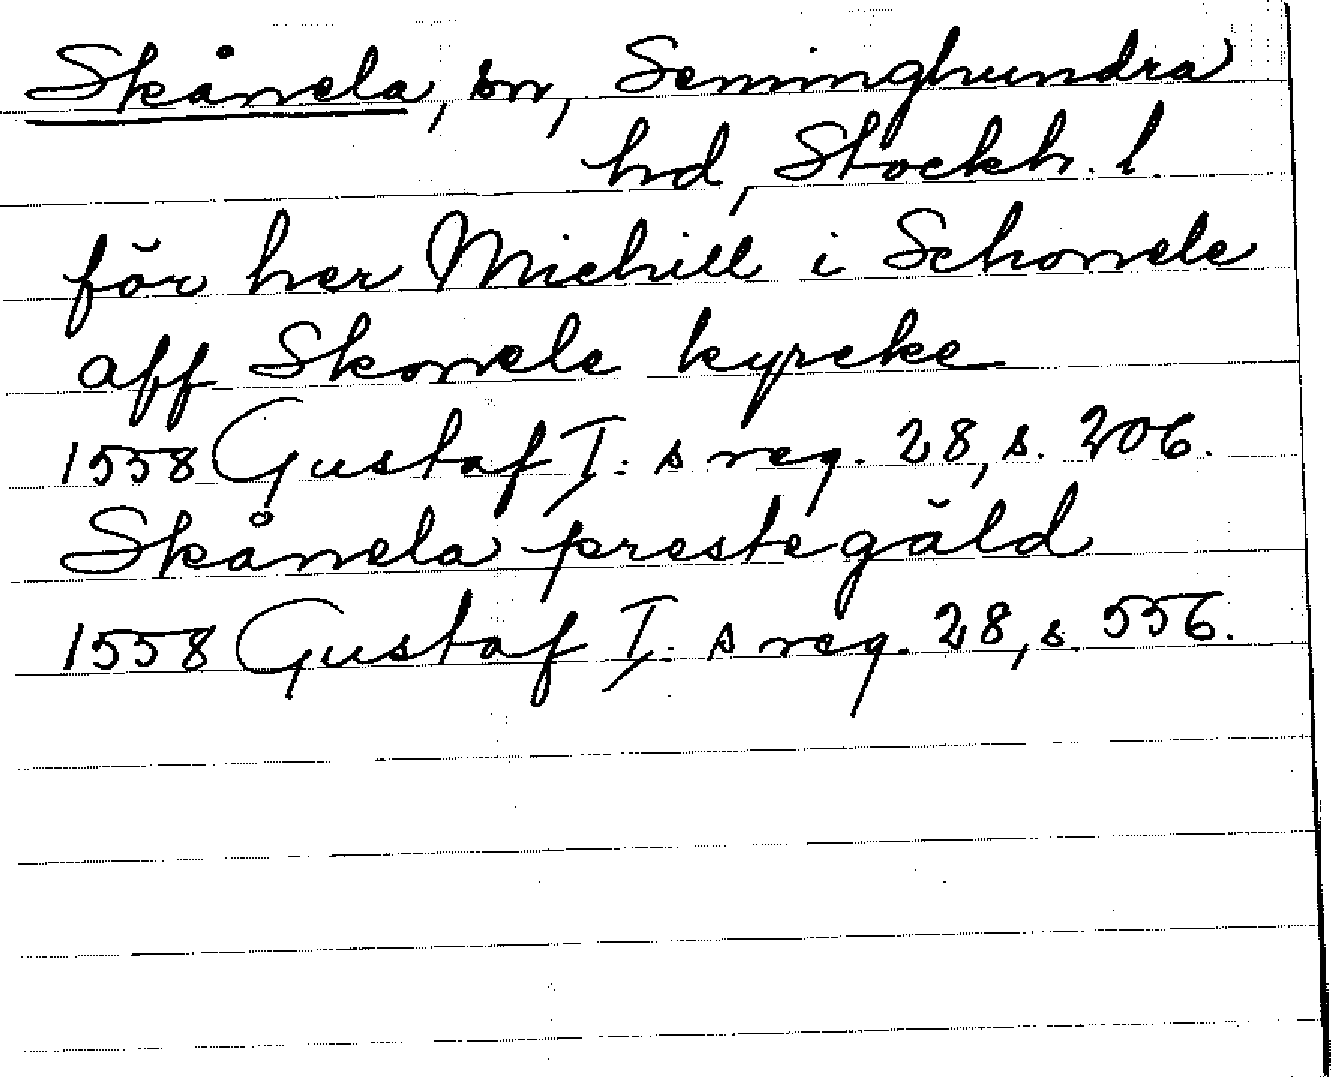 Skånela, sn, Seminghundra
hd, Stockh. l
för her Michill i Schonele
aff Skonele kyrcke
1558 Gustaf I: s reg. 28, s. 206.
Skånela prestegäld
1558 Gustaf I: s reg. 28, s. 556.